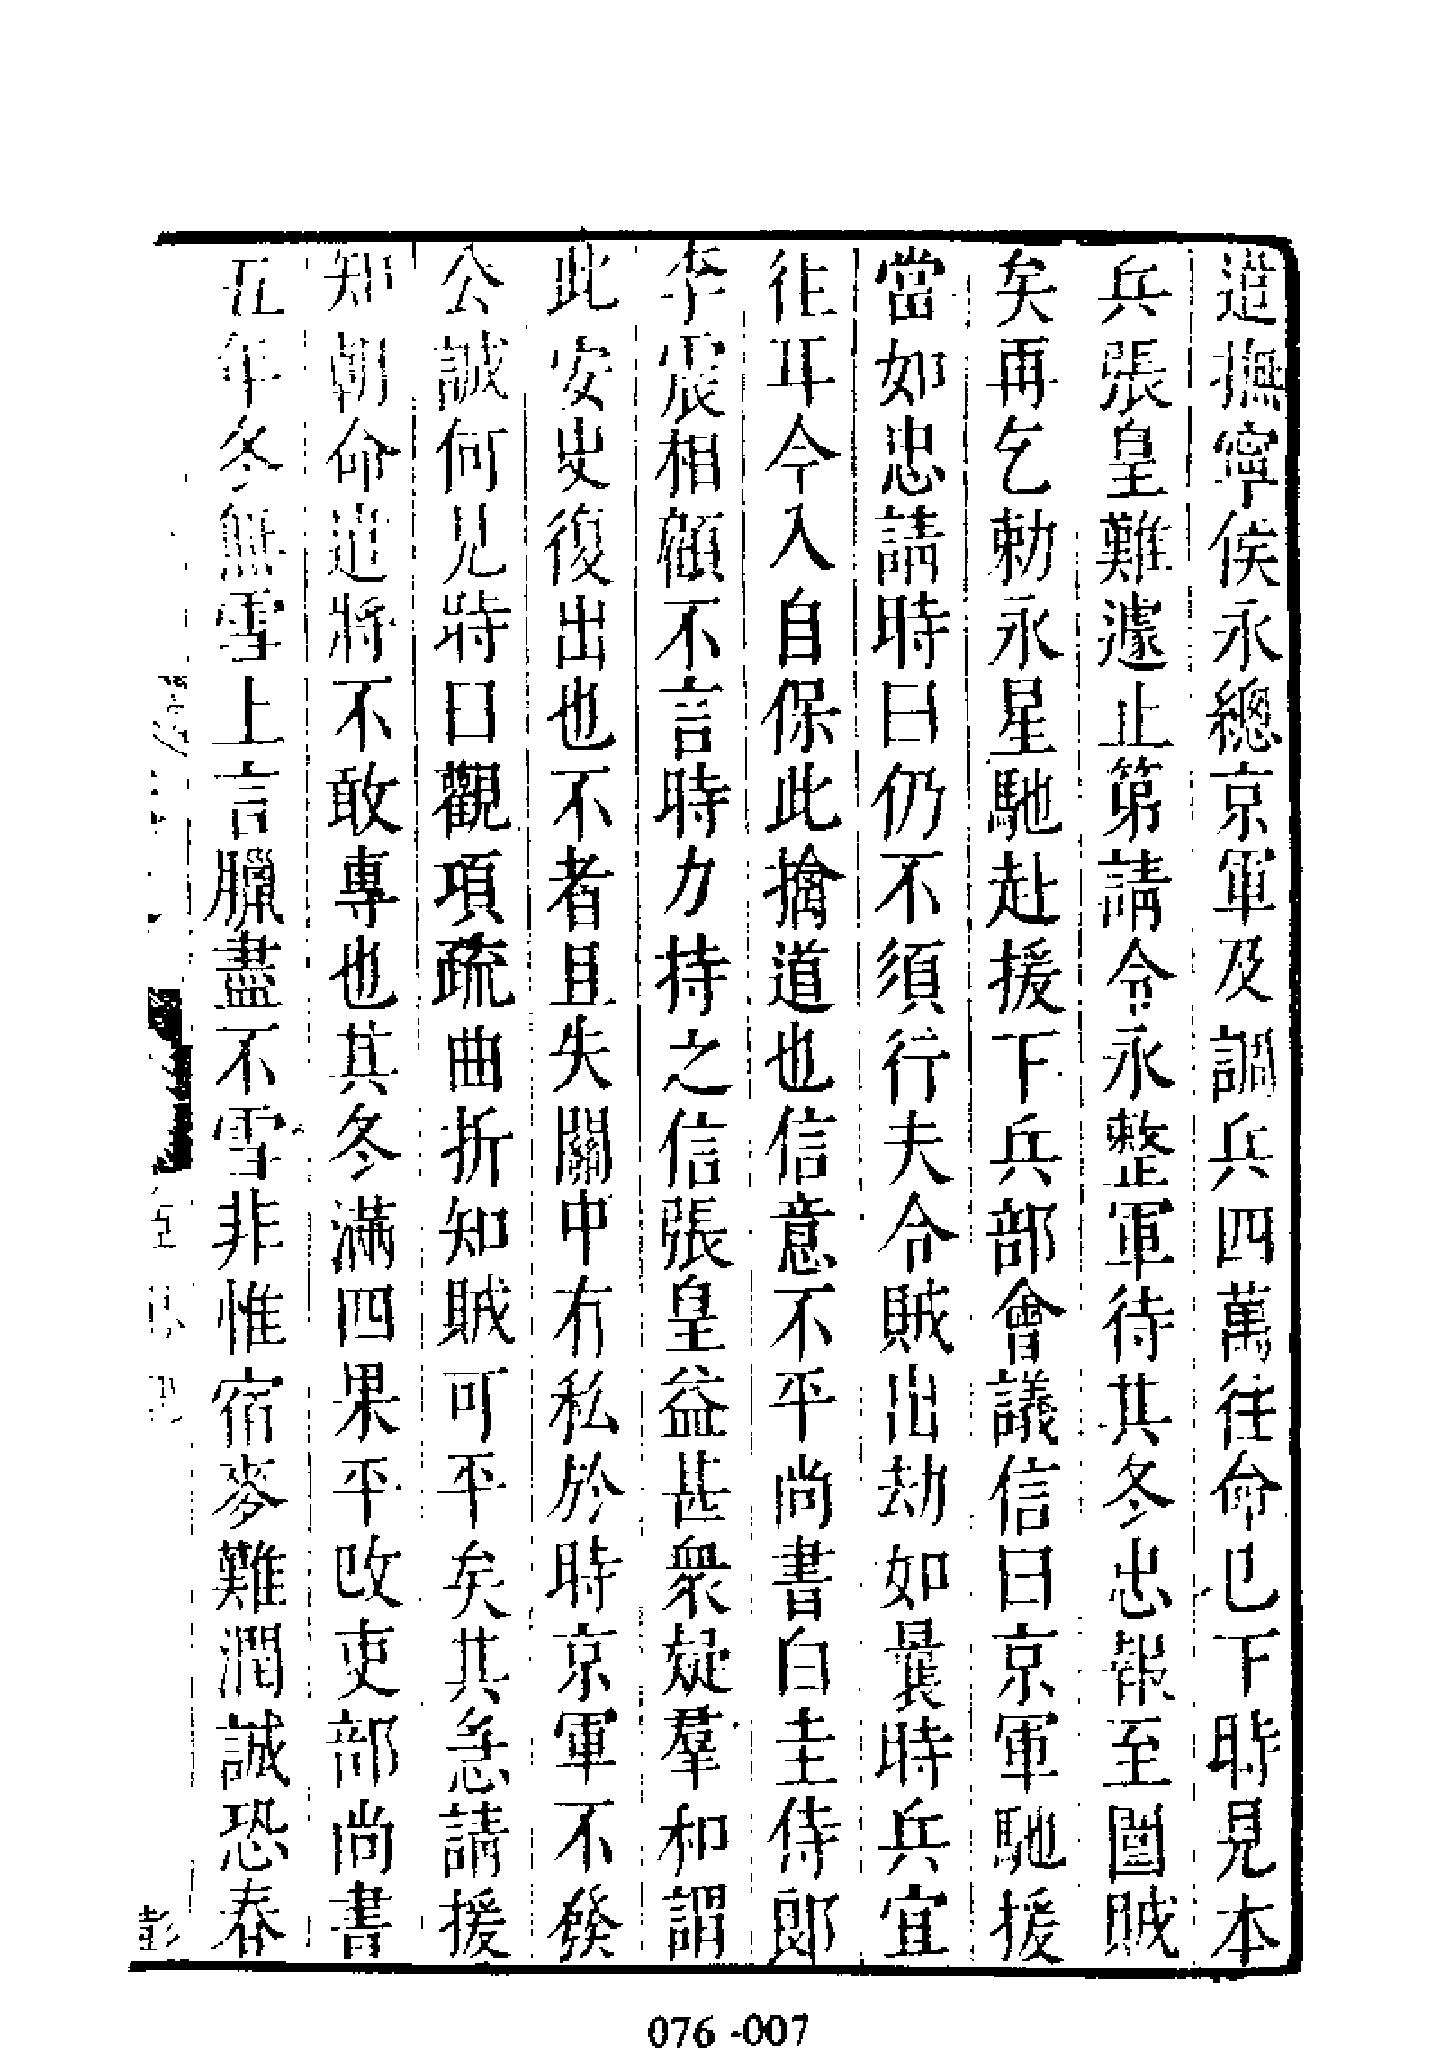 遣撫寧侯永總京軍及調兵四萬往命巳下時見本
兵張皇難遽止第請令永整軍待其冬忠報至圍賊
矣再乞勅永星馳赴援下兵部會議信曰京軍馳援
當如忠請時曰仍不須行夫令賊出劫如曩時兵宜
徃耳今入自保此擒道也信意不平尚書白圭侍郎
李震相顧不言時力持之信張皇益甚衆疑羣和謂
此安史復出也不者且失關中有私於時京軍不發
公誠何見時曰觀項疏曲折知賊可平矣其急請援
知朝命遣將不敢專也其冬滿四果平改吏部尚書
五年冬無雪上言臘盡不雪非惟宿麥難潤誠恐春
彭
076-007